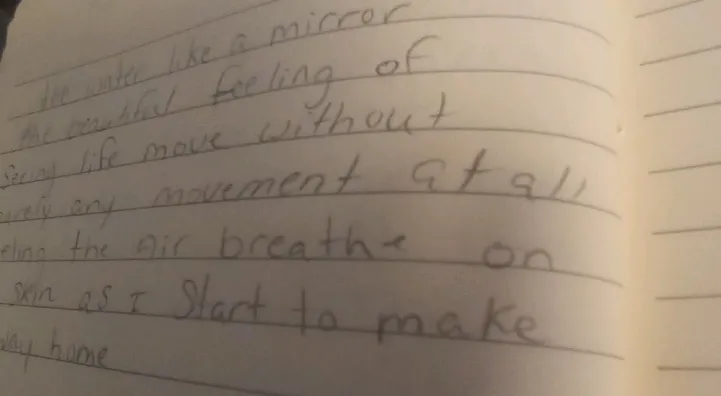 the water like a mirror
the beautiful feeling of
seeing life move without
any movement at all
the air breathe on
skin as I start to make
way home